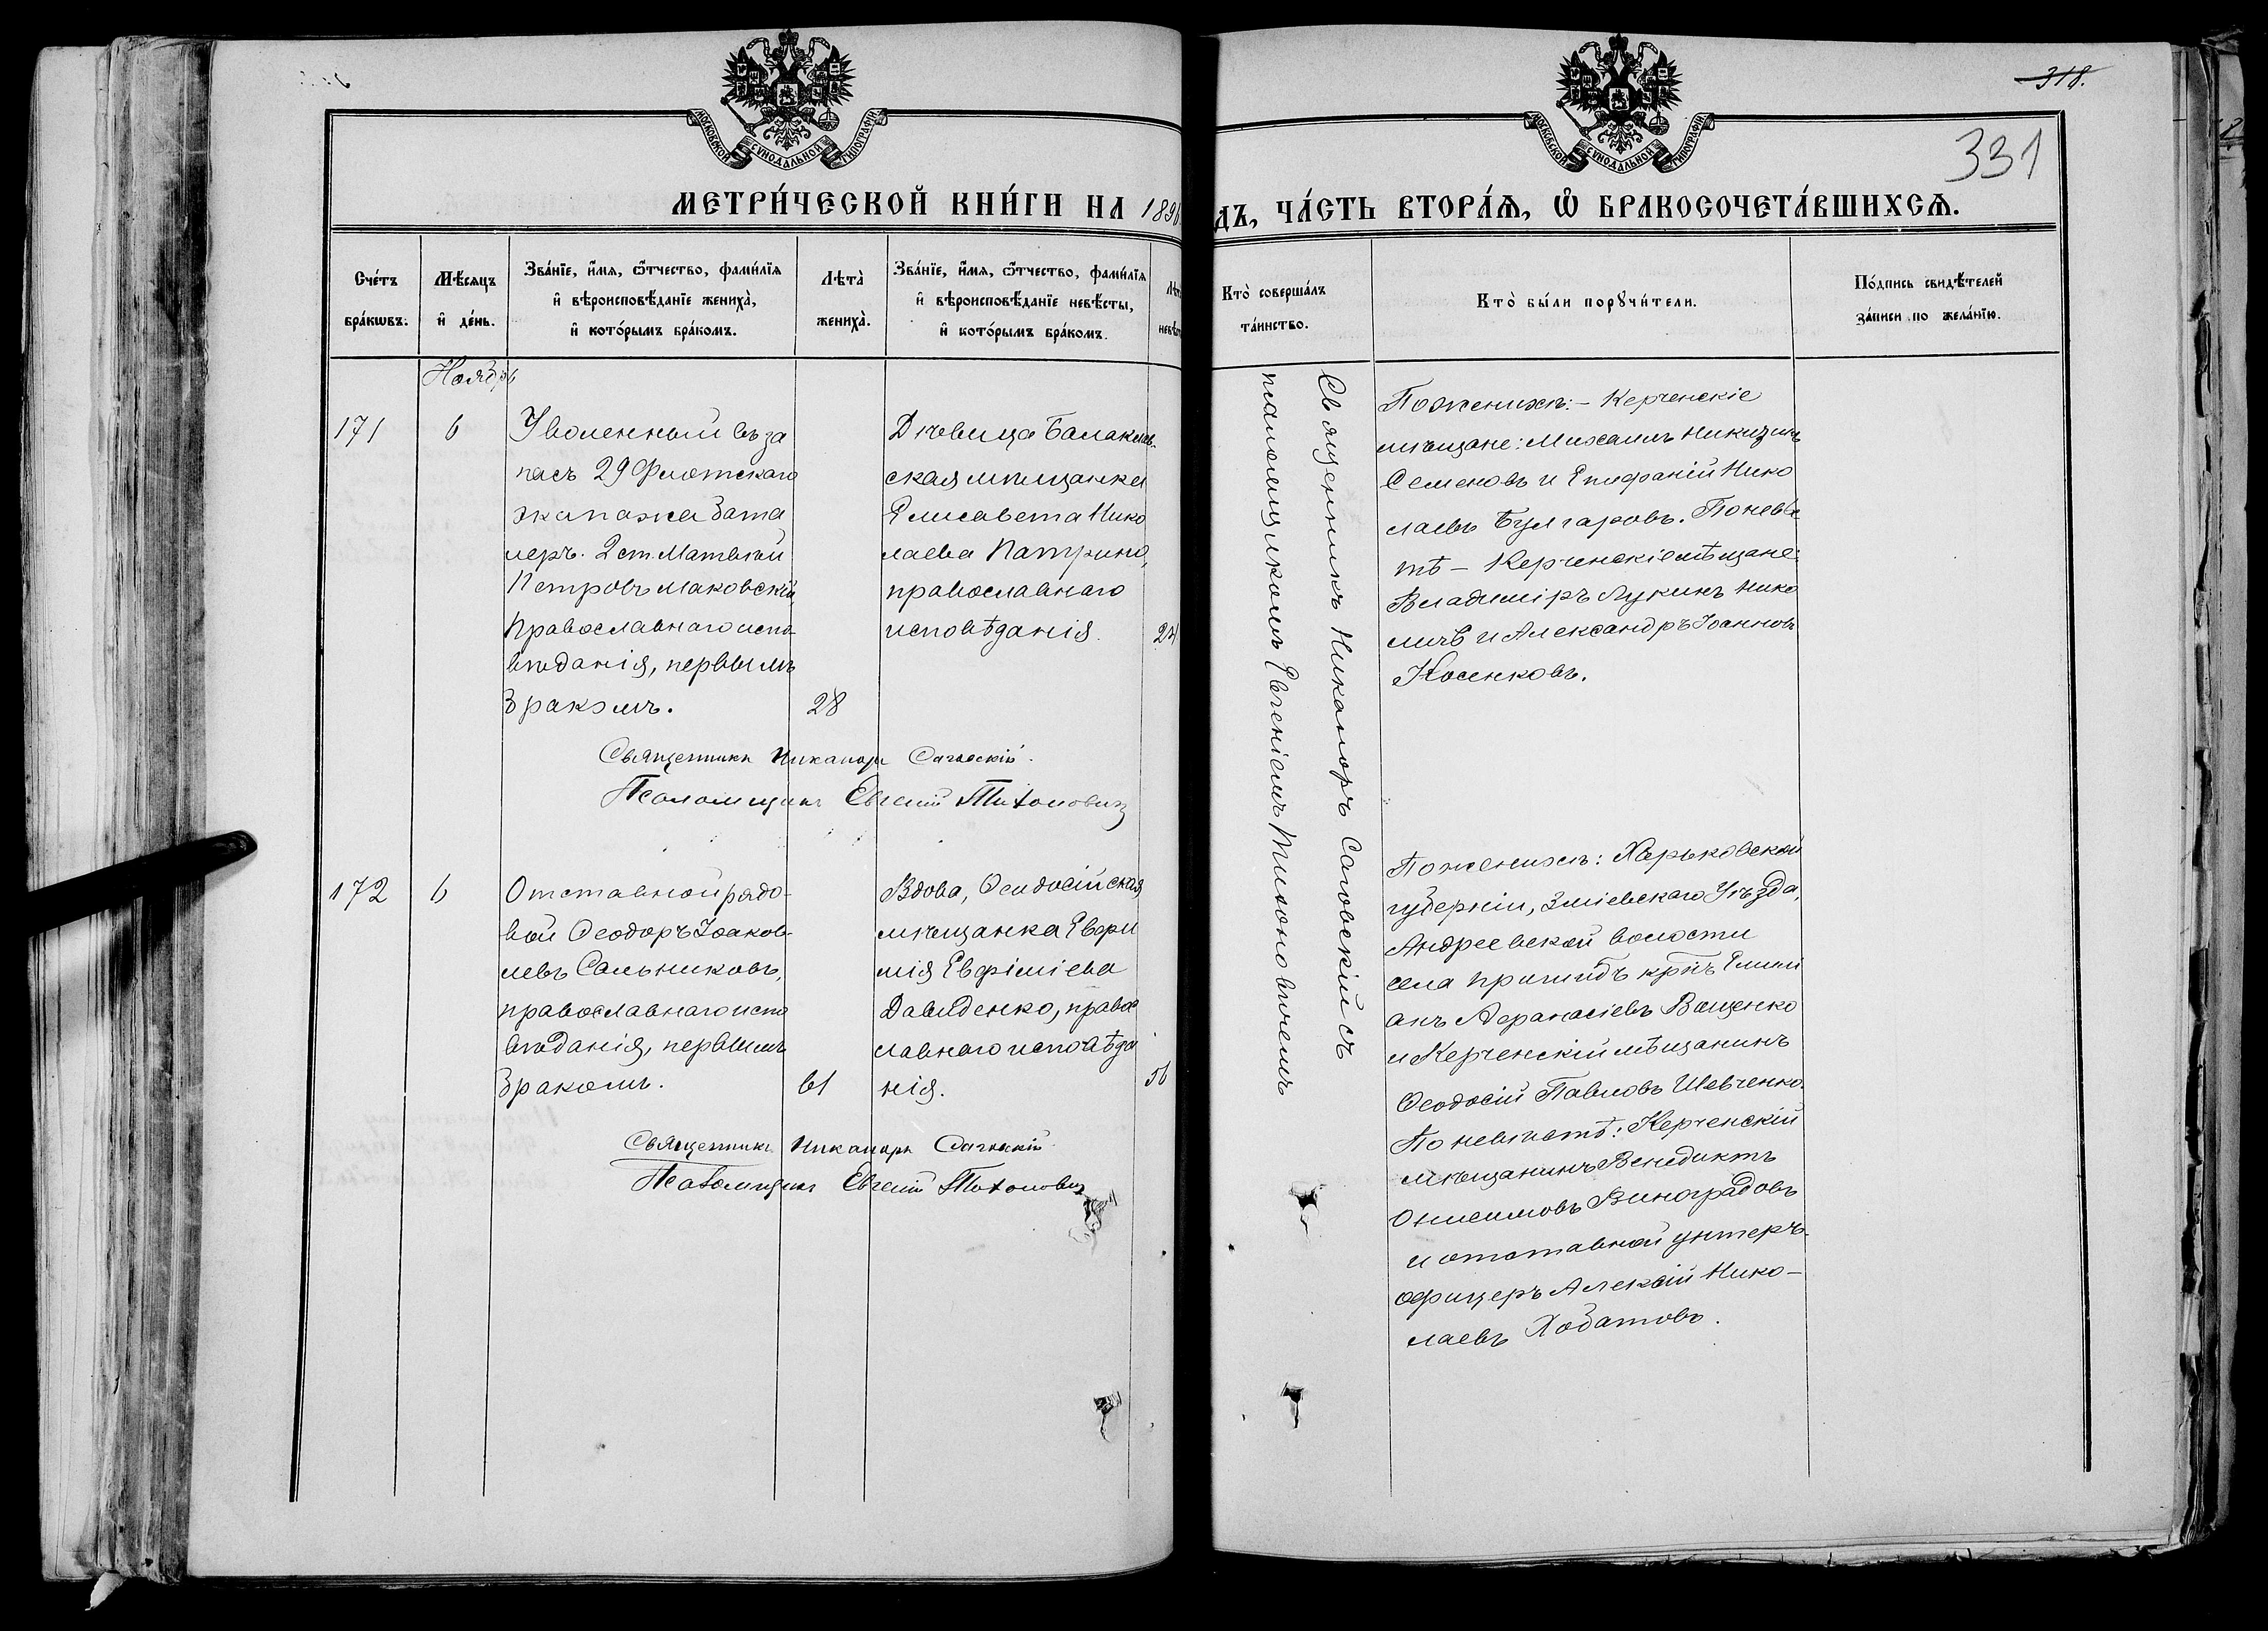 318.
331
МОСКОВСКОЙ СѴНОДАЛЬНОЙ ТИПОГРАФІИ
МОСКОВСКОЙ СѴНОДАЛЬНОЙ ТИПОГРАФІИ
МЕТРИ́ЧЕСКОЙ КНИ́ГИ НА 1896
ДЪ, ЧА́СТЬ ВТОРА́Ѧ, Ѿ БРАКОСОЧЕТА́ВШИХСѦ.
Сче́тъ
бра́кѡвъ.
Мѣ́сѧцъ
и҆ де́нь.
Зва́нїе, и҆́мѧ, ѻ҆́тчество, фами́лїѧ
и҆ вѣроисповѣ́данїе жениха̀,
и҆ кото́рымъ бра́комъ.
Лѣта̀
жениха̀.
Зва́нїе, и҆́мѧ, ѻ҆́тчество, фами́лїѧ
и҆ вѣроисповѣ́данїе невѣ́сты,
и҆ кото́рымъ бра́комъ.
Кто̀ соверша́лъ
та́инство.
Кто̀ бы́ли порꙋчи́тели.
По́дпись свидѣ́телей
за́писи по жела́нїю.
Ноябрь
171
6
Уволенный въ за
пасъ 29 Флотскаго
экипажа Бата
леръ. 2 ст. Матвѣй
Петровъ Маковскій,
Православнаго испо-
вѣданія, первымъ
бракомъ.
28
Дѣвица Балаклав-
ская мѣщанка
Елисавета Нико
лаева Патрино,
православнаго
исповѣданія.
24
Священникъ Никаноръ Саговскій с
псаломщикомъ Евгеніемъ Тихоновичемъ
По женихѣ: – Керченскіе
мѣщане: Михаилъ Никитинъ
Семеновъ и Епифаній Нико
лаевъ Булгаровъ. По невѣс
тѣ – Керченскіе мѣщане:
Владиміръ Лукинъ Нико
личъ и Александръ Іоанновъ
Косенковъ.
Священникъ Никаноръ Саговскій.
Псаломщикъ Евгеній Тихоновичъ
172
6
Отставной рядо-
вой Ѳеодоръ Іоаков-
левъ Сальниковъ,
православнаго испо
вѣданія, первымъ
бракомъ.
61
Вдова, Ѳеодосійская
мѣщанка Евфи
мія Евфіміева
Давиденко, правос
лавнаго исповѣда
нія.
56
По женихѣ: Харьковской
губерніи, Зміевскаго Уѣзда,
Андреевской волости
села кр͠нъ Емили
анъ Аѳанасіевъ Ващенко
и Керченскій мѣщанинъ
Ѳеодосій Павловъ Шевченко.
По невѣстѣ: Керченскій
мѣщанинъ Венедиктъ
Онисимовъ Виноградовъ
и отставной унтеръ-
офицеръ Алексій Нико-
лаевъ Хобатовъ.
Священникъ Никаноръ Саговскій
Псаломщикъ Евгеній Тихоновичъ